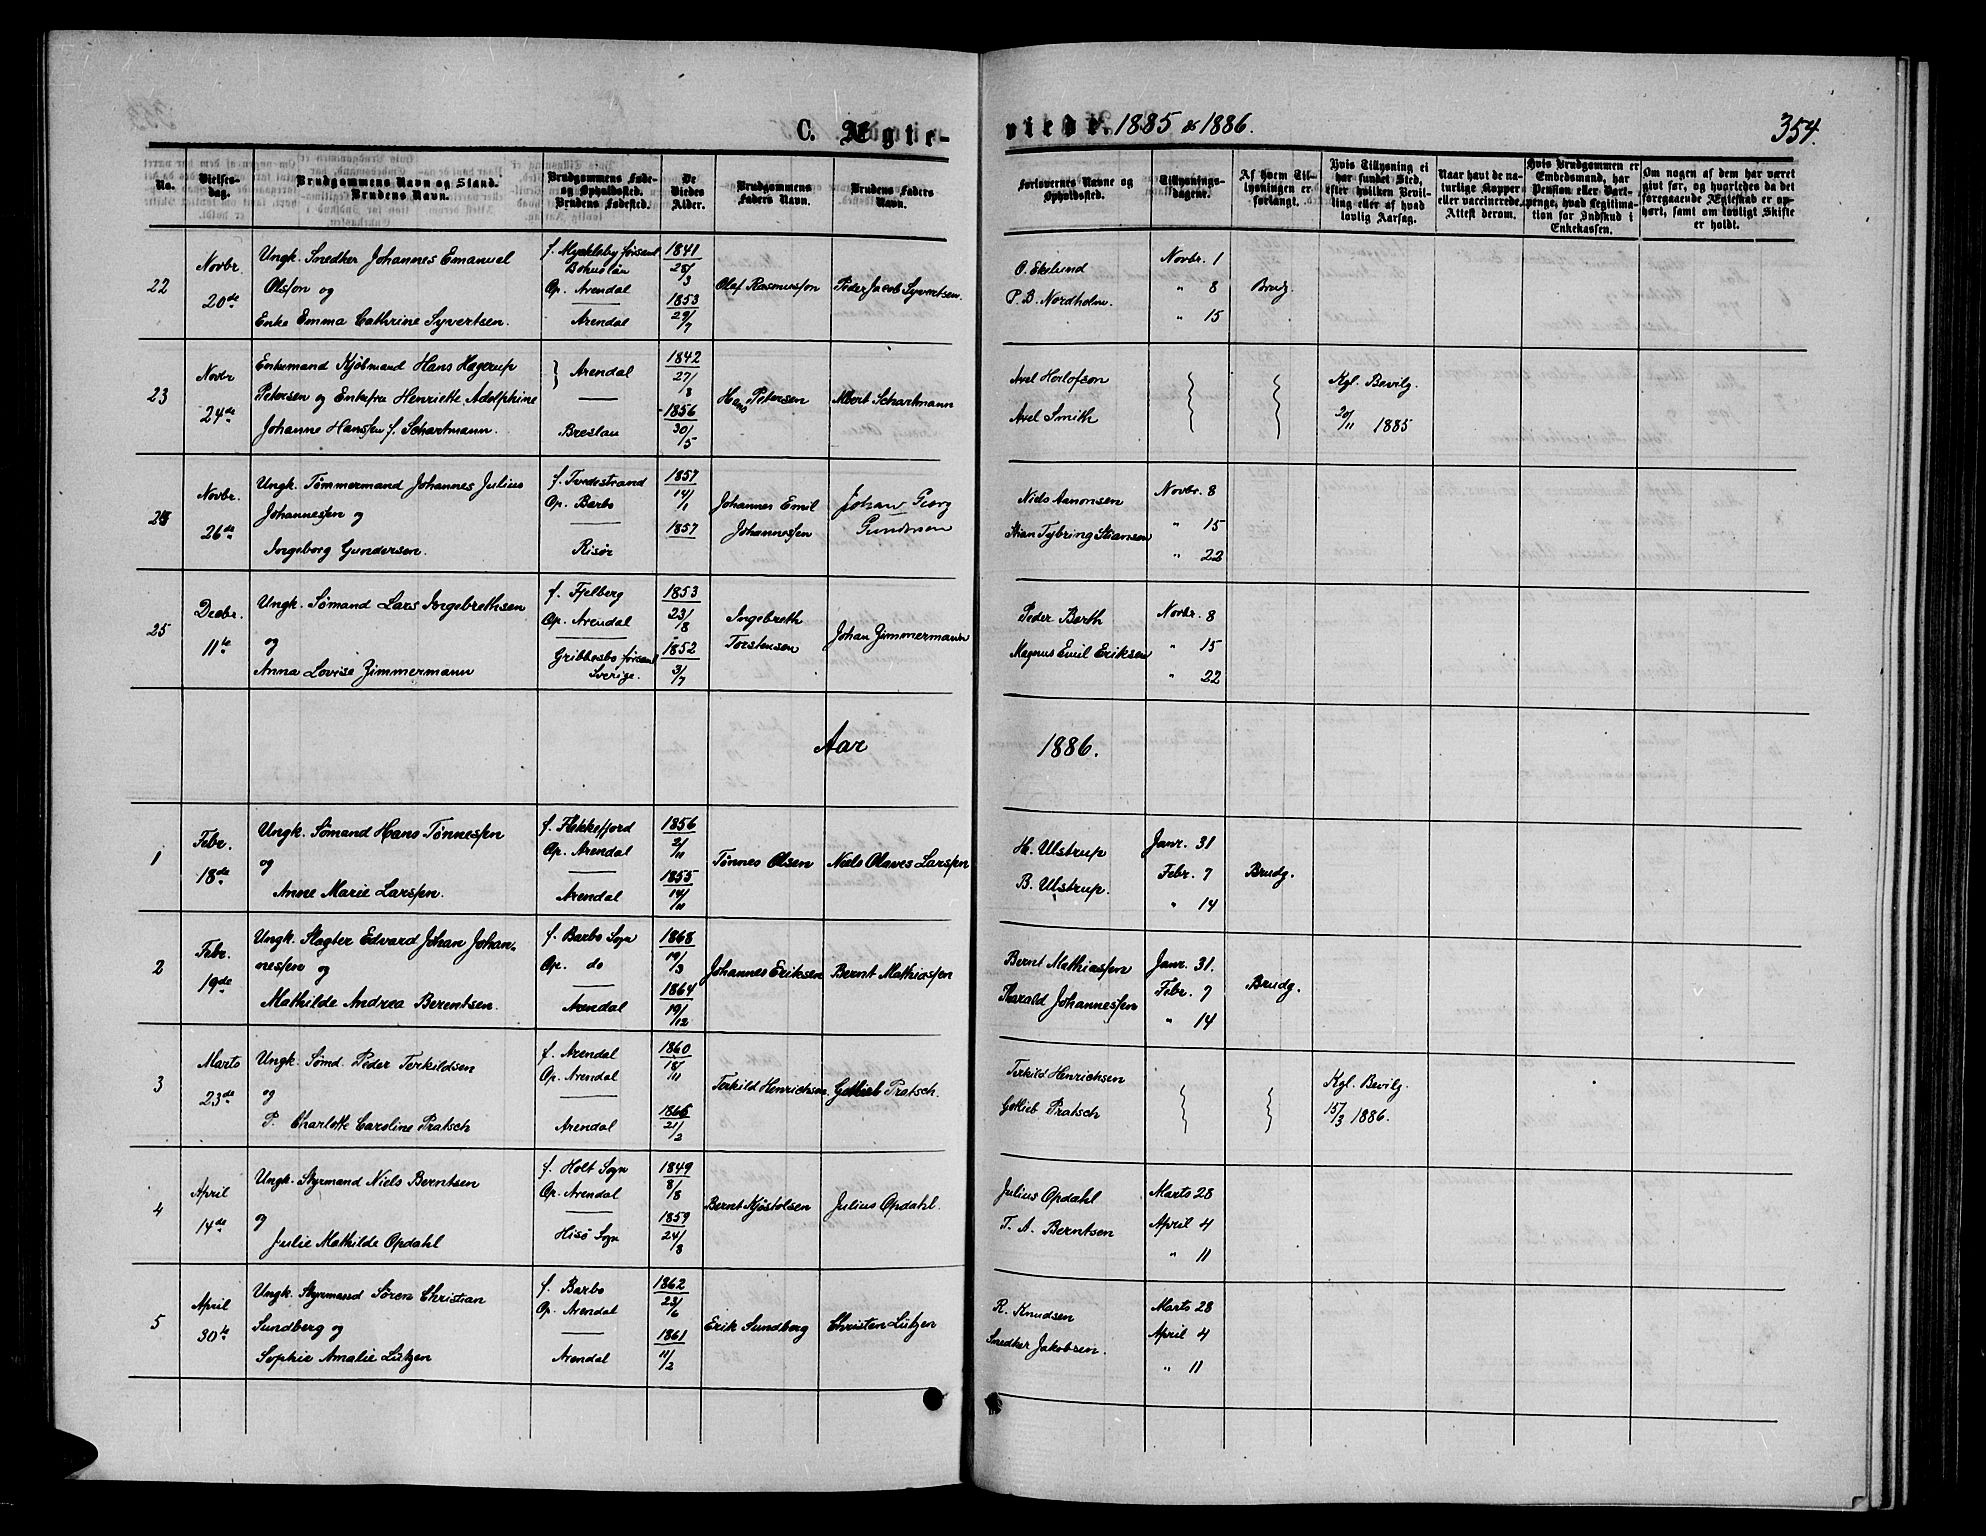 C. Ægte-
viede. 1885 & 1886.
354.
No.
Vielses-
dag.
Brudgommens Navn og Stand.
Brudens Navn.
Brudgommens Føde-
og Opholdssted.
Brudens Fødested.
De
Viedes
Alder.
Brudgommens
Faders Navn.
Brudens Faders
Navn.
Forlovernes Navne og
Opholdssted.
Tillysnings-
dagene.
Af hvem Til-
lysningen er
forlangt.
Hvis Tillysning ei
har fundet Sted,
efter hvilken Bevil-
ling eller af hvad
lovlig Aarsag.
Naar havt de na-
turlige Kopper
eller vaccinerede.
Attest derom.
Hvis Brudgommen er
Embedsmand, har
Pension eller Vart-
penge, hvad Legitima-
tion for Indskud i
Enkekassen.
Om nogen af dem har været
gift før, og hvorledes da det
foregaaende Ægteskab er op-
hørt, samt om lovligt Skifte
er holdt.
22
Novbr.
20de
Ungk. Snedker Johannes Emanuel
Olsson og
Enke Emma Cathrine Syvertsen.
f. Myckleby församl
Bohuslän
Op. Arendal
Arendal
1841
28/3
1853
29/7
Olaf Rasmusson
Peder Jacob Syvertsen.
O. Ekelund
P. B. Nordholm.
Novbr. 1
" 8
" 15
Brudg.
23
Novbr
24de
Enkemand Kjöbmand Hans Hagerup
Petersen og Enkefru Henriette Adolphine
Johanne Hanssen f. Schartmann.
Arendal
Breslau
1842
27/8
1856
30/5
Hans Petersen
Albert Schartmann
Axel Herlofson
Axel Smith
Kgl. Bevilg.
20/11 1885
24
Novbr.
26de
Ungk. Tömmermand Johannes Julius
Johannessen og
Ingeborg Gundersen.
f. Tvedestrand
Op. Barbo
Risör
1857
14/1
1857
Johannes Emil
Johannessen
Johan Georg
Gundersen
Niels Aanonsen
Stian Tybring Stiansen
Novbr. 8
" 15
" 22
25
Decbr.
11te
Ungk. Sömand Lars Ingebrethsen
og
Anna Lovise Zimmermann
f. Fjelberg
Op. Arendal
Gribbesbo församl
Sverige.
1853
23/8
1852
3/7
Ingebreth
Torstensen
Johan Zimmermann
Peder Berth
Magnus Emil Eriksen
Novbr. 8
" 15
" 22
Aar
1886.
1
Febr.
18de
Ungk. Sömand Hans Tönnessen
og
Anne Marie Larssen.
f. Flekkefjord
Op. Arendal
Arendal
1856
2/11
1855
14/11
Tönnes Olsen
Niels Olaves Larssen
H. Ulstrup
B. Ulstrup.
Janr. 31
Febr. 7
" 14
Brudg.
2
Febr.
19de
Ungk. Slagter Edvard Johan Johan-
nessen og
Mathilde Andrea Berentsen.
f. Barbo Sogn
Op. do
Arendal
1868
19/3
1864
19/12
Johannes Eriksen
Bernt Mathiassen
Bernt Mathiassen
Harald Johannessen
Janr. 31.
Febr. 7
" 14
Brudg.
3
Marts
23de
Ungk. Sömd. Peder Terkildsen
og
P. Charlotte Caroline Pratsch
f. Arendal
Op. Arendal
Arendal
1860
18/111
1865
21/2
Terkild Henrichsen
Gottlieb Pratsch.
Terkild Henrichsen
Gottlieb Pratsch
Kgl. Bevilg.
15/3 1886.
4
April
14de
Ungk. Styrmand Niels Berntsen
og
Julie Mathilde Opdahl
f. Holt Sogn
Op. Arendal
Hisö Sogn
1849
8/8
1859
24/8
Bernt Kjöstolsen
Julius Opdahl.
Julius Opdahl
T. A. Berntsen
Marts 28
April 4
" 11
5
April
30te
Ungk. Styrmand Sören Christian
Sundberg og
Sophie Amalie Lützen
f. Barbo
Op. Arendal
Arendal
1862
23/6
1861
11/2
Erik Sundberg
Christen Lützen
R. Knudsen
Snedker Jakobsen.
Marts 28
April 4
" 11